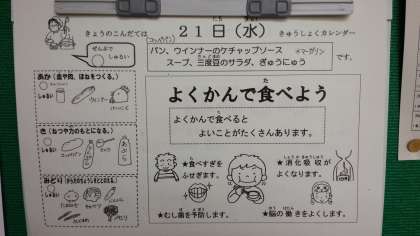 きょうのこんだては
２１日（水）
きゅうしょくカレンダー
ぜんぶで
しゅるい
コッペパン
パン、ウインナーのケチャップソース
マーガリン
スープ、三度豆のサラダ、ぎゅうにゅう
です。
あか（血や肉、ほねをつくる。）
しゅるい
ウインナー
き（ねつや力のもとになる。）
しゅるい
コッペパン
あぶら
みどり
しゅるい
よくかんで食べよう
よくかんで食べると
よいことがたくさんあります。
★食べすぎを
ふせぎます。
★消化吸収が
よくなります。
★むし歯を予防します。
★脳の働きをよくします。